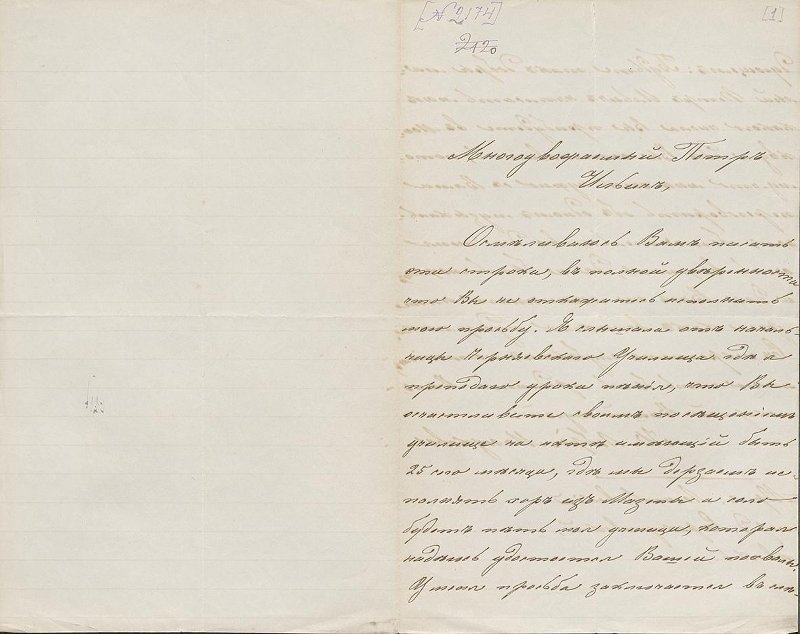 [N 2174]
2120
[1]
Многоуважаемый Петръ
Ильичъ,
Осмѣливаюсь Вамъ писать
эти строки, въ полной увѣренности
что Вы не откажитесь исполнить
мою просьбу. Я слышала отъ началь-
ницы Училища гдѣ я
преподаю уроки пѣнія, что Вы
осчастливите своимъ посѣщеніемъ
училище на актѣ имѣющій быть
25 сего мѣсяца, гдѣ мы дерзаемъ ис-
полнять хоръ изъ Мазепы и соло
будетъ пѣть моя ученица, которая
надѣюсь удостоится Вашей похвалы.
И моя просьба заключается въ слѣ-